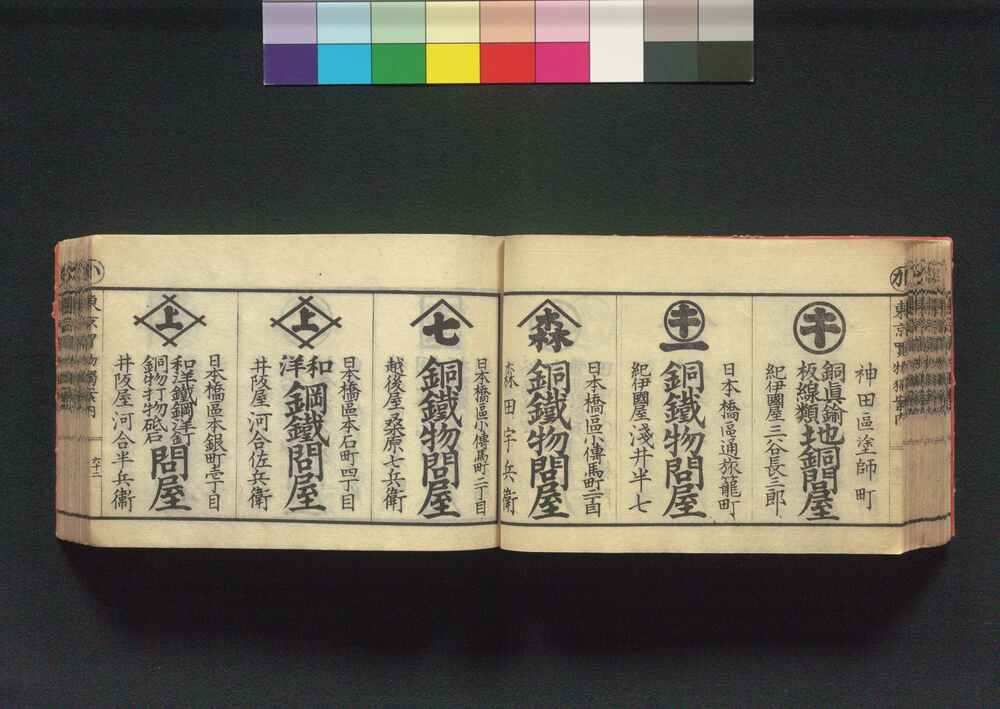 か
東京買物獨案内
キ
神田區塗師町
銅眞鍮
板線類
地銅問屋
紀伊國屋三谷長三郎
キ一
日本橋區通旅籠町
銅鐵物問屋
紀伊國屋淺井半七
森
日本橋區小傳馬町二丁目
銅鐵物問屋
森田宇兵衛
七
日本橋區小傳馬町二丁目
銅鐵物問屋
越後屋桑原七兵衛
上
日本橋區本石町四丁目
和洋
鋼鐵問屋
井阪屋河合佐兵衛
上
日本橋區本銀町壱丁目
和洋鐵鋼洋釘
銅物打物砥石
問屋
井阪屋河合半兵衞
東京買物獨案内
六十二